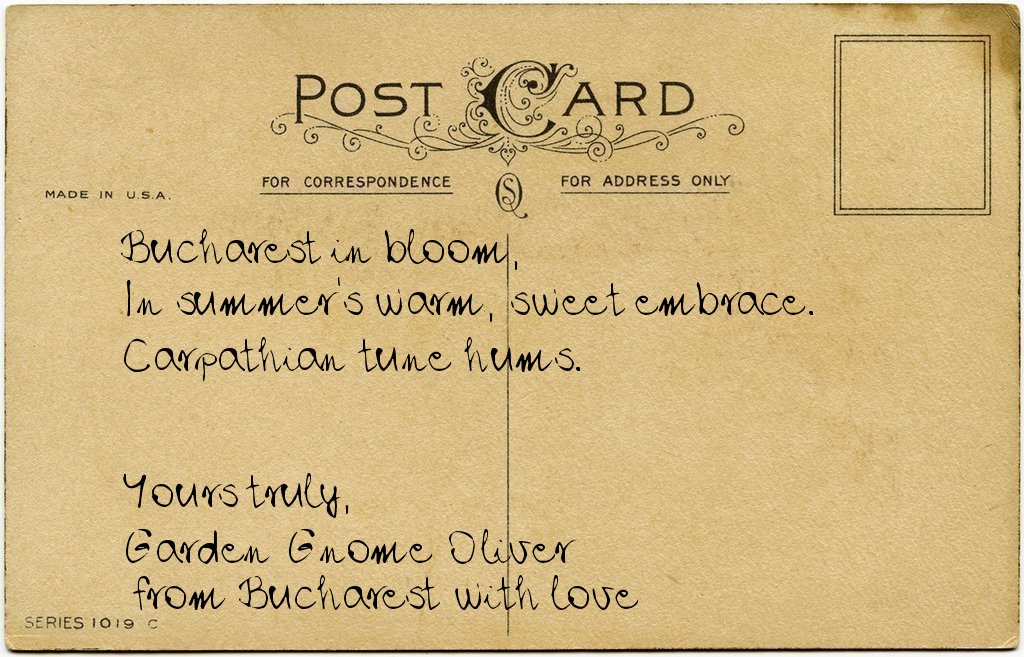 POST CARD
FOR CORRESPONDENCE
FOR ADDRESS ONLY
MADE IN U.S.A.
Bucharest in bloom,
In summer's warm, sweet embrace.
Carpathian tune hums.
Yours truly,
Garden Gnome Oliver
from Bucharest with love
SERIES 1019 C